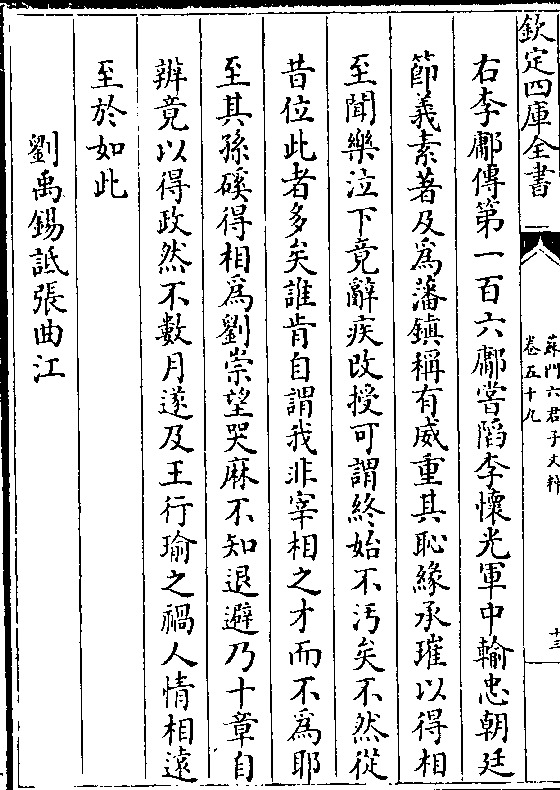 欽定四庫全書
蘇門六君子文粹
卷五十九
十三
右李鄘傳第一百六鄘嘗䧟李懷光軍中輸忠朝廷
節義素著及為藩鎮稱有威重其恥緣承璀以得相
至聞樂泣下竟辭疾改授可謂終始不汚矣不然從
昔位此者多矣誰肯自謂我非宰相之才而不為耶
至其孫磎得相為劉崇望哭麻不知退避乃十章自
辨竟以得政然不數月遂及王行瑜之禍人情相遠
至於如此
劉禹錫詆張曲江